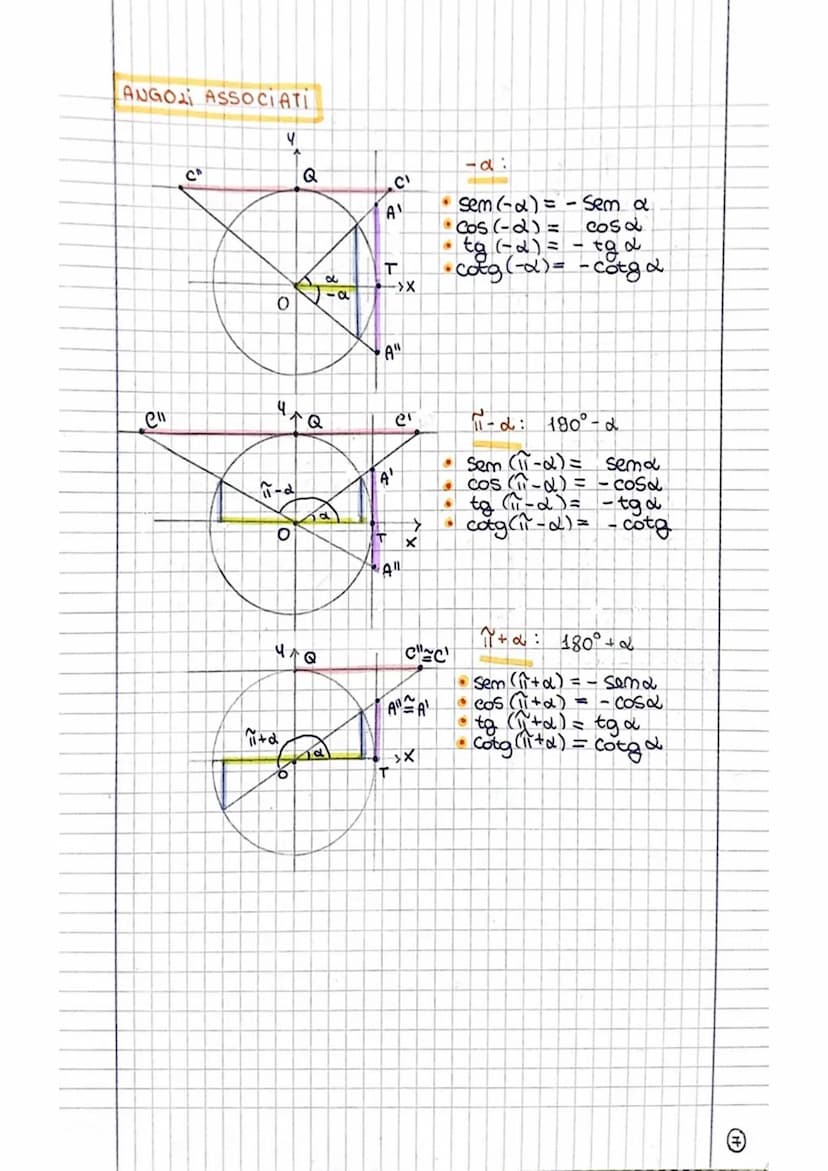 ANGOLi ASSOCiATi
y
C" Q C'
A'
α T
-α x
O
A"
-α:
• sem(-α) = - sem α
• cos(-α) = cosα
• tg (-α) = - tg α
• cotg(-α) = - cotg α
y
C" Q C'
A'
π-α
α
O T x
A"
π-α: 180°-α
• sem(π-α) = semα
• cos(π-α) = -cosα
• tg (π-α) = -tgα
• cotg(π-α) = -cotg
y Q C"≅C'
A"≅A'
π+α
α x
O T
π+α: 180°+α
• sem(π+α) = - semα
• cos(π+α) = - cosα
• tg (π+α) = tgα
• cotg(π+α) = cotg α
7